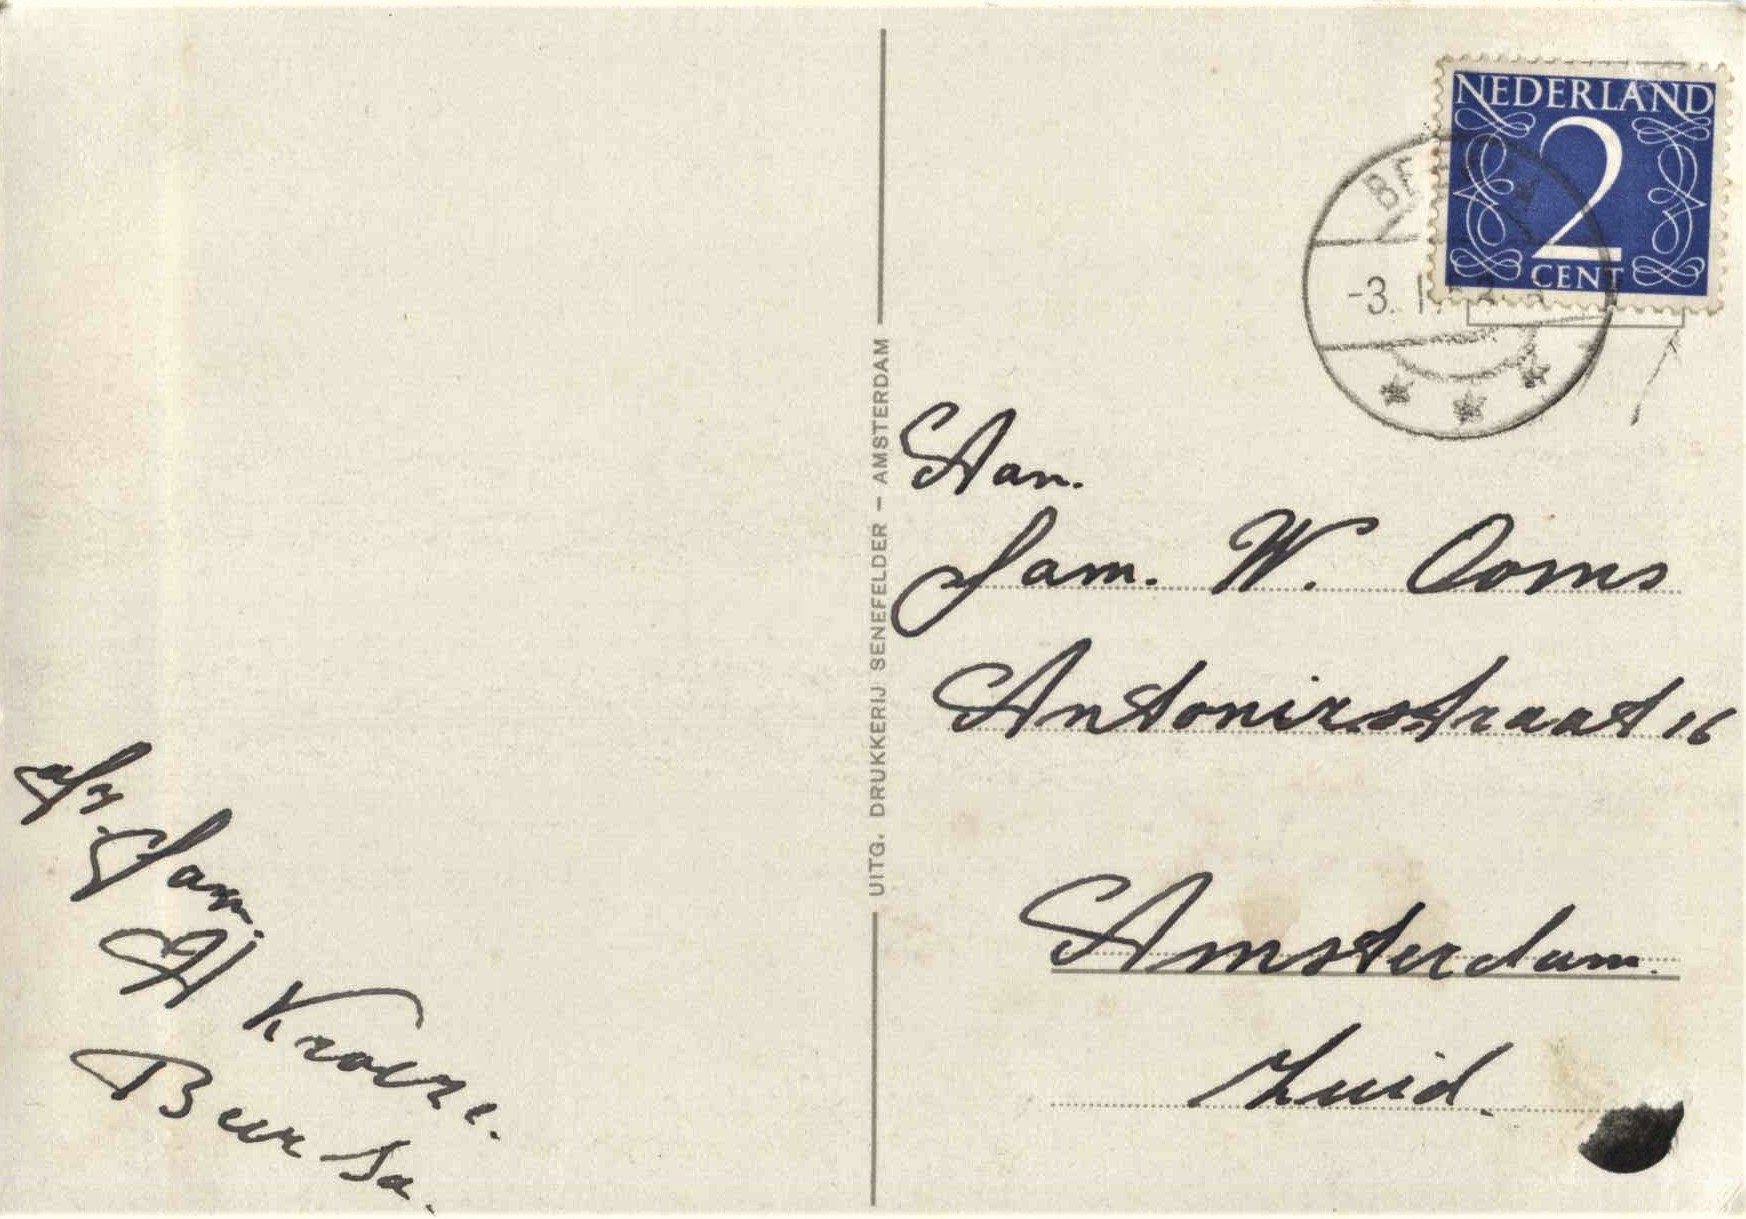 NEDERLAND
2
CENT
-3.
UITG. DRUKKERIJ SENEFELDER — AMSTERDAM
Aan.
Fam. W. Ooms
Antonirstraat 16
Amsterdam.
Zuid.
afz.
Fam.
H Kroeze.
Beerta.